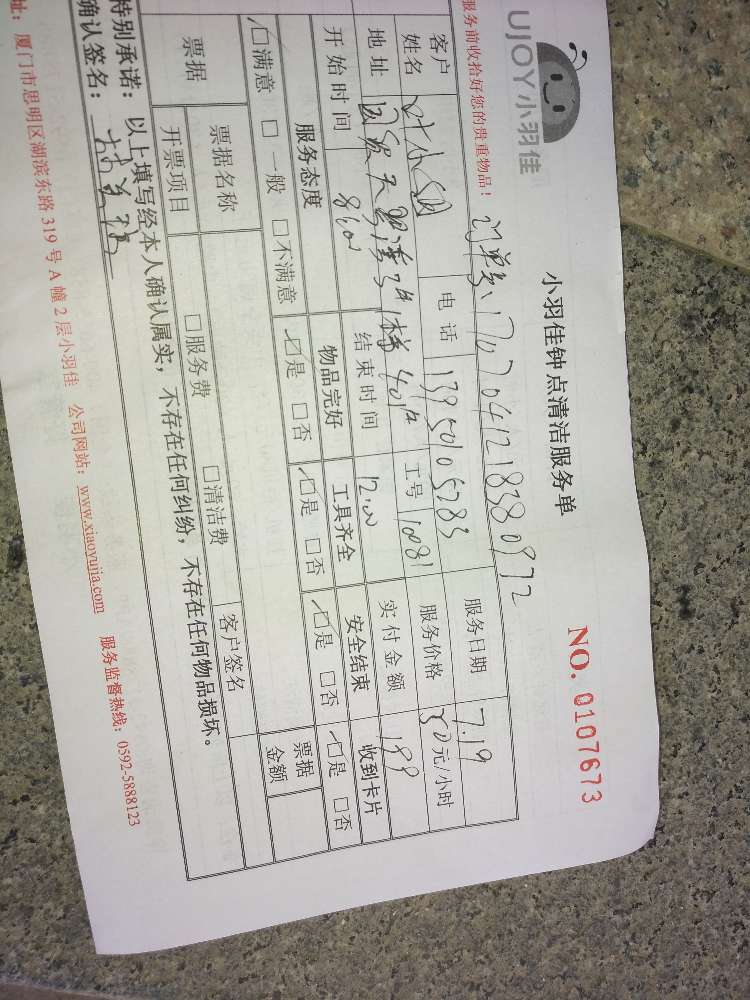 UJOY小羽佳
小羽佳钟点清洁服务单
NO. 0107673
服务前收拾好您的贵重物品!
客户姓名 叶小姐 电话 13950105783 服务日期 7.19
地址 工号 10081 服务价格 50元/小时
开始时间 8:00 结束时间 12:00 实付金额 199
服务态度 物品完好 工具齐全 安全结束 收到卡片
☑满意 □一般 □不满意 ☑是 □否 ☑是 □否 ☑是 □否 ☑是 □否
票据 票据名称 □服务费 □清洁费 票据金额
开票项目 客户签名
特别承诺:以上填写经本人确认属实,不存在任何纠纷,不存在任何物品损坏。
确认签名:
址:厦门市思明区湖滨东路 319 号 A 幢 2 层小羽佳 公司网站:www.xiaoyujia.com 服务监督热线:0592-5888123